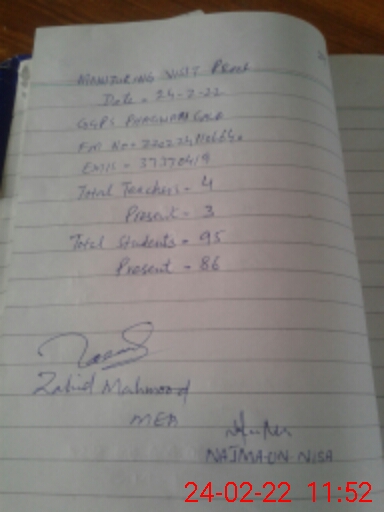 MONITORING VISIT PROOF
Date = 24-2-22
GGPS
EMIS = 37370419
Total Teachers = 4
Present = 3
Total Students = 95
Present = 86
Zahid Mahmood
MEA
NAJMA-UN-NISA
24-02-22 11:52